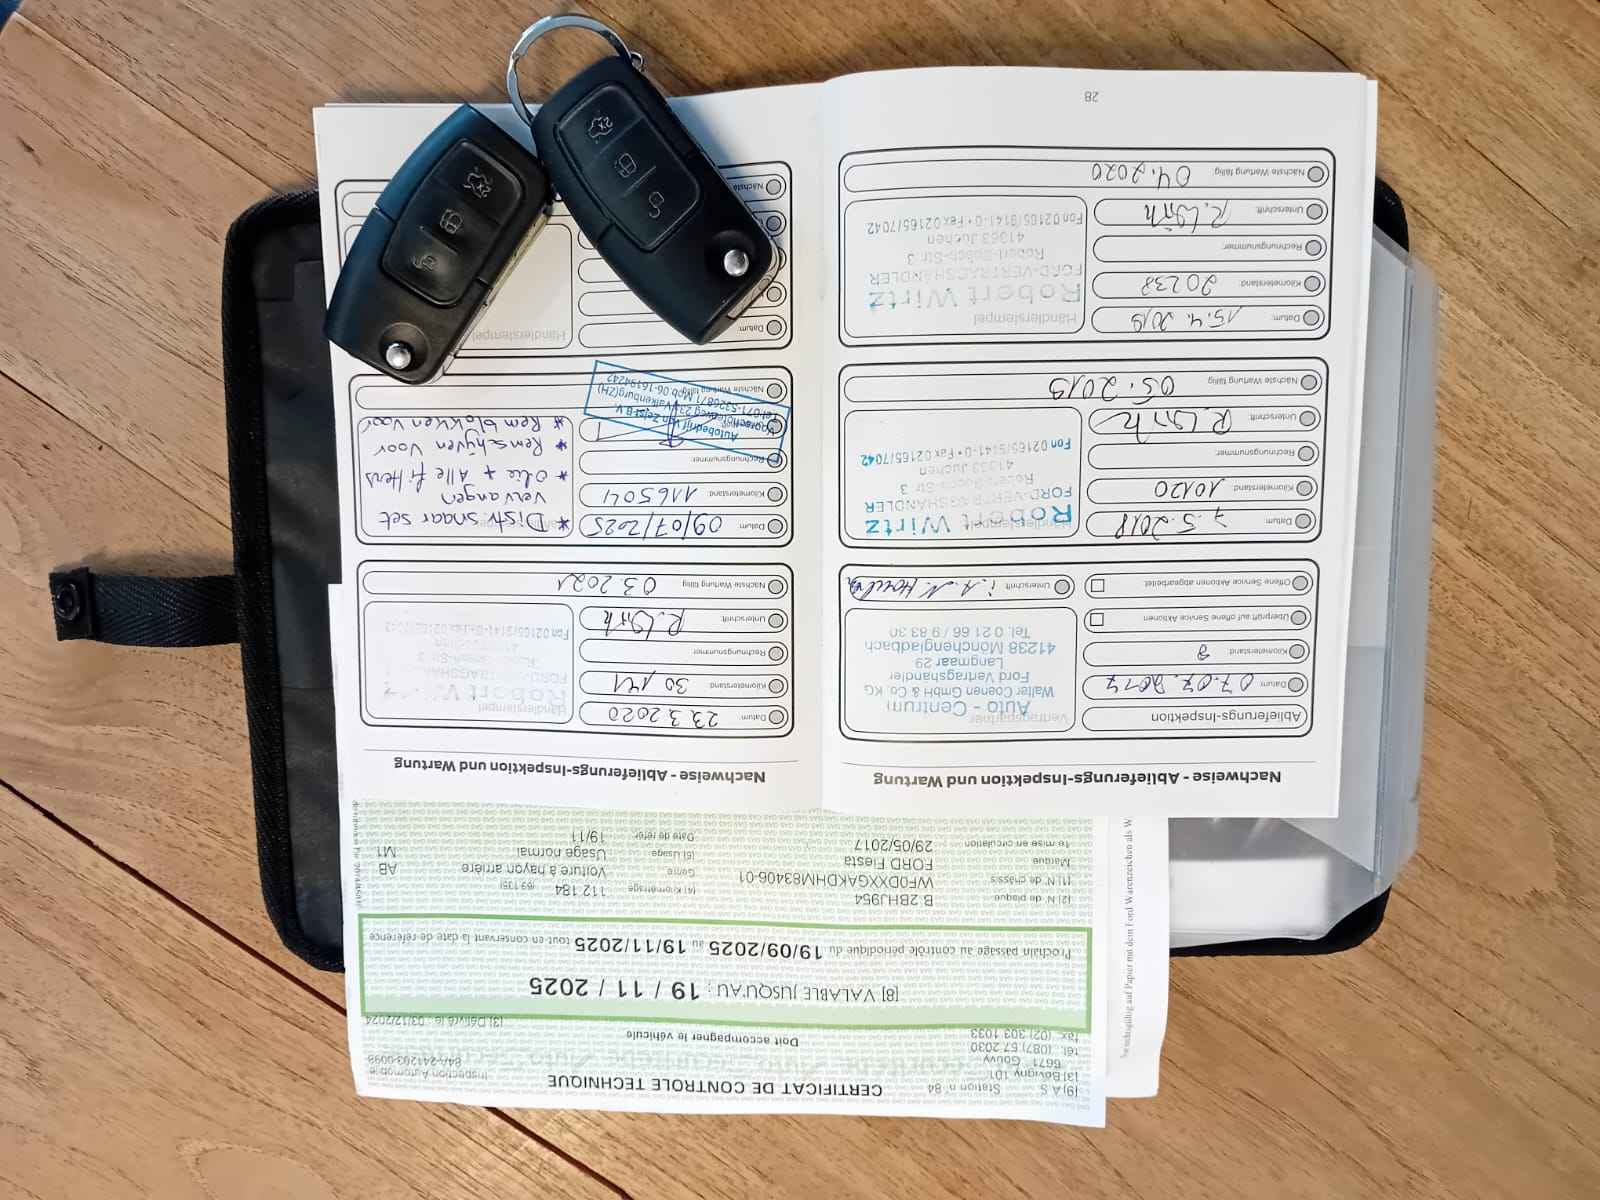 [9] A.S. Station n° 84
[3] Bovigny 101
6671 Gouvy
tél. (087) 57 2030
fax (02) 303 1033
CERTIFICAT DE CONTROLE TECHNIQUE
Inspection Automobile
84A-241203-0098
Doit accompagner le véhicule
[3] Délivré le : 03/12/2024
[8] VALABLE JUSQU'AU : 19 / 11 / 2025
Prochain passage au contrôle périodique du 19/09/2025 au 19/11/2025 tout en conservant la date de référence
[2] N° de plaque B 2BHJ954
[1] N° de châssis WF0DXXGAKDHM83406-01
Marque FORD Fiesta
1e mise en circulation 29/05/2017
[4] Kilométrage 112 184
Genre Voiture à hayon arrière AB
[6] Usage Usage normal M1
Date de réfer 19/11
Nachweise - Ablieferungs-Inspektion und Wartung
Ablieferungs-Inspektion
Datum: 07.07.2017
Kilometerstand:
Überprüft auf offene Service Aktionen
Offene Service Aktionen abgearbeitet
Unterschrift:
Vertragspartner
Auto - Centrum
Walter Coenen GmbH & Co. KG
Ford Vertragshändler
Langmaar 29
41238 Mönchengladbach
Tel. 0 21 66 / 9 83 30
Datum: 7.5.2018
Kilometerstand: 10120
Rechnungsnummer:
Unterschrift:
Nächste Wartung fällig: 05.2019
Händlerstempel
Robert Wirtz
FORD-VERTRAGSHÄNDLER
Robert-Bosch-Str. 3
41363 Jüchen
Fon 02165/9141-0 • Fax 02165/7042
Datum: 15.4.2019
Kilometerstand: 20238
Rechnungsnummer:
Unterschrift:
Nächste Wartung fällig: 04.2020
Händlerstempel
Robert Wirtz
FORD-VERTRAGSHÄNDLER
Robert-Bosch-Str. 3
41363 Jüchen
Fon 02165/9141-0 • Fax 02165/7042
28
Nachweise - Ablieferungs-Inspektion und Wartung
Datum: 23.3.2020
Kilometerstand: 30141
Rechnungsnummer:
Unterschrift:
Nächste Wartung fällig: 03.2021
Händlerstempel
Datum: 09/07/2025
Kilometerstand: 116504
Rechnungsnummer:
Nächste Wartung fällig:
* Distr. snaar set
vervangen
* Olie + Alle filters
* Remschijven Voor
* Remblokken Voor
Autobedrijf van Zelst B.V.
Valkenburg(ZH)
Datum:
Händlerstempel
Nächste
2x
2x